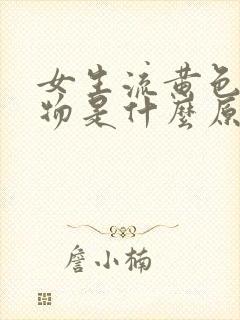 女生流黄色
物是什麼原
詹小楠